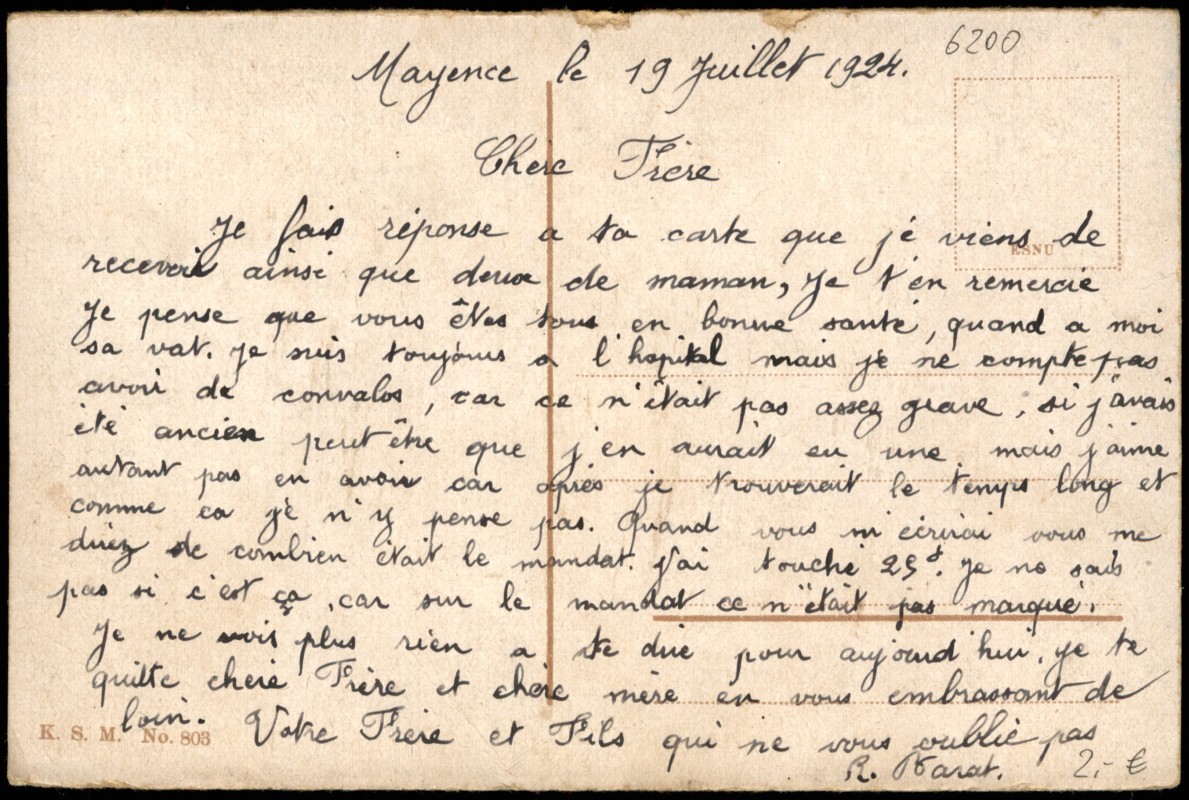 6200
Mayence le 19 Juillet 1924.
Chere Frère
Je fais réponse a ta carte que je viens de
ESNU
recevoir ainsi que deux de maman, Je t'en remercie
Je pense que vous êtes tous en bonne santé, quand a moi
sa vat. Je suis toujours a l'hopital mais je ne compte pas
avoir de convalos, car ce n'était pas assez grave, si j'avais
été ancien peut être que j'en aurait eu une mais j'aime
autant pas en avoir car après je trouverait le temps long et
comme ca je n'y pense pas. Quand vous m'écrirai vous me
direz de combien était le mandat. J'ai touché 25f. Je ne sais
pas si c'est ça, car sur le mandat ce n'était pas marqué.
Je ne vois plus rien a te dire pour aujourd'hui. Je te
quitte chere Frère et chere mère en vous embrassant de
loin. Votre Frère et Fils qui ne vous oublie pas
K. S. M. No. 803
R. Barat.
2,- €